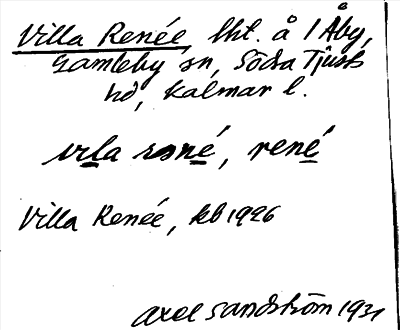 Villa Renée, lht. å 1 Åby,
Gamleby sn, Södra Tjusts
hd, Kalmar l.
vila rəné, rené
Villa Renée, kb 1926
Axel Sandström 1931